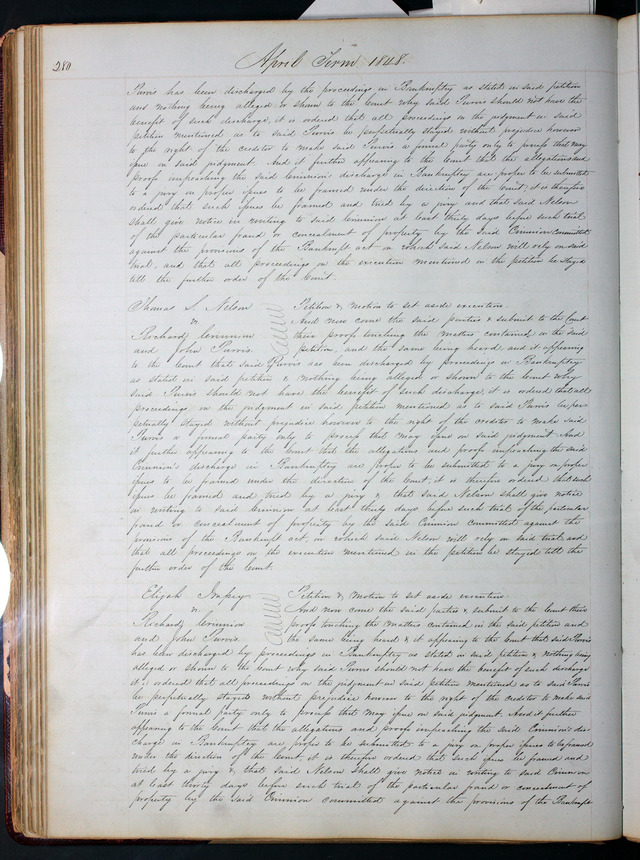 280
April Term 1848.
Purvis has been discharged by the proceedings in Bankruptcy as stated in said petition
and nothing being alleged or shown to the Court why said Purvis should not have the
benefit of such discharge, it is ordered that all proceedings on the judgment in said
petition mentioned as to said Purvis be perpetually stayed without prejudice however
to the right of the creditor to make said Purvis a formal party only to process that may
issue on said judgment. And it further appearing to the Court that the allegations and
proof impeaching the said Crinnion's discharge in Bankruptcy are proper to be submitted
to a jury on proper issues to be framed under the direction of the Court; it is therefore
ordered that such issues be framed and tried by a jury and that said Nelson
shall give notice in writing to said Crinnion at least thirty days before such trial
of the particular fraud or concealment of property by the said Crinnion committed
against the provisions of the Bankrupt act on which said Nelson will rely on said
trial, and that all proceedings on the execution mentioned in the petition be stayed
till the further order of the Court.
Thomas S. Nelson
v.
Richard Crinnion
and John Purvis
Petition & Motion to set aside execution
And now come the said parties & submit to the Court
their proofs touching the matters contained in the said
petition, and the same being heard and it appearing
to the Court that said Purvis has been discharged by proceedings in Bankruptcy
as stated in said petition & nothing being alleged or shown to the Court why
said Purvis should not have the benefit of such discharge, it is ordered that all
proceedings on the judgment in said petition mentioned as to said Purvis be per-
petually stayed without prejudice however to the right of the creditor to make said
Purvis a formal party only to process that may issue on said judgment. And
it further appearing to the Court that the allegations and proofs impeaching the said
Crinnion's discharge in Bankruptcy are proper to be submitted to a jury on proper
issues to be framed under the direction of the Court, it is therefore ordered that such
issues be framed and tried by a jury & that said Nelson shall give notice
in writing to said Crinnion at least thirty days before such trial of the particular
fraud or concealment of property by the said Crinnion committed against the
provisions of the Bankrupt act, on which said Nelson will rely on said trial and
that all proceedings on the execution mentioned in the petition be stayed till the
further order of the Court.
Elijah Impey
v.
Richard Crinnion
and John Purvis
Petition & Motion to set aside execution
And now come the said parties & submit to the Court their
proofs touching the matters contained in the said petition and
the same being heard & it appearing to the Court that said Purvis
has been discharged by proceedings in Bankruptcy as stated in said petition & nothing being
alleged or shown to the Court why said Purvis should not have the benefit of such discharge
it is ordered that all proceedings on the judgment in said petition mentioned as to said Purvis
be perpetually stayed without prejudice however to the right of the creditor to make said
Purvis a formal party only to process that may issue on said judgment. And it further
appearing to the Court that the allegations and proof impeaching the said Crinnion's dis-
charge in Bankruptcy are proper to be submitted to a jury on proper issues to be framed
under the direction of the Court it is therefore ordered that such issues be framed and
tried by a jury & that said Nelson shall give notice in writing to said Crinnion
at least thirty days before such trial of the particular fraud or concealment of
property by the said Crinnion committed against the provisions of the Bankrupt